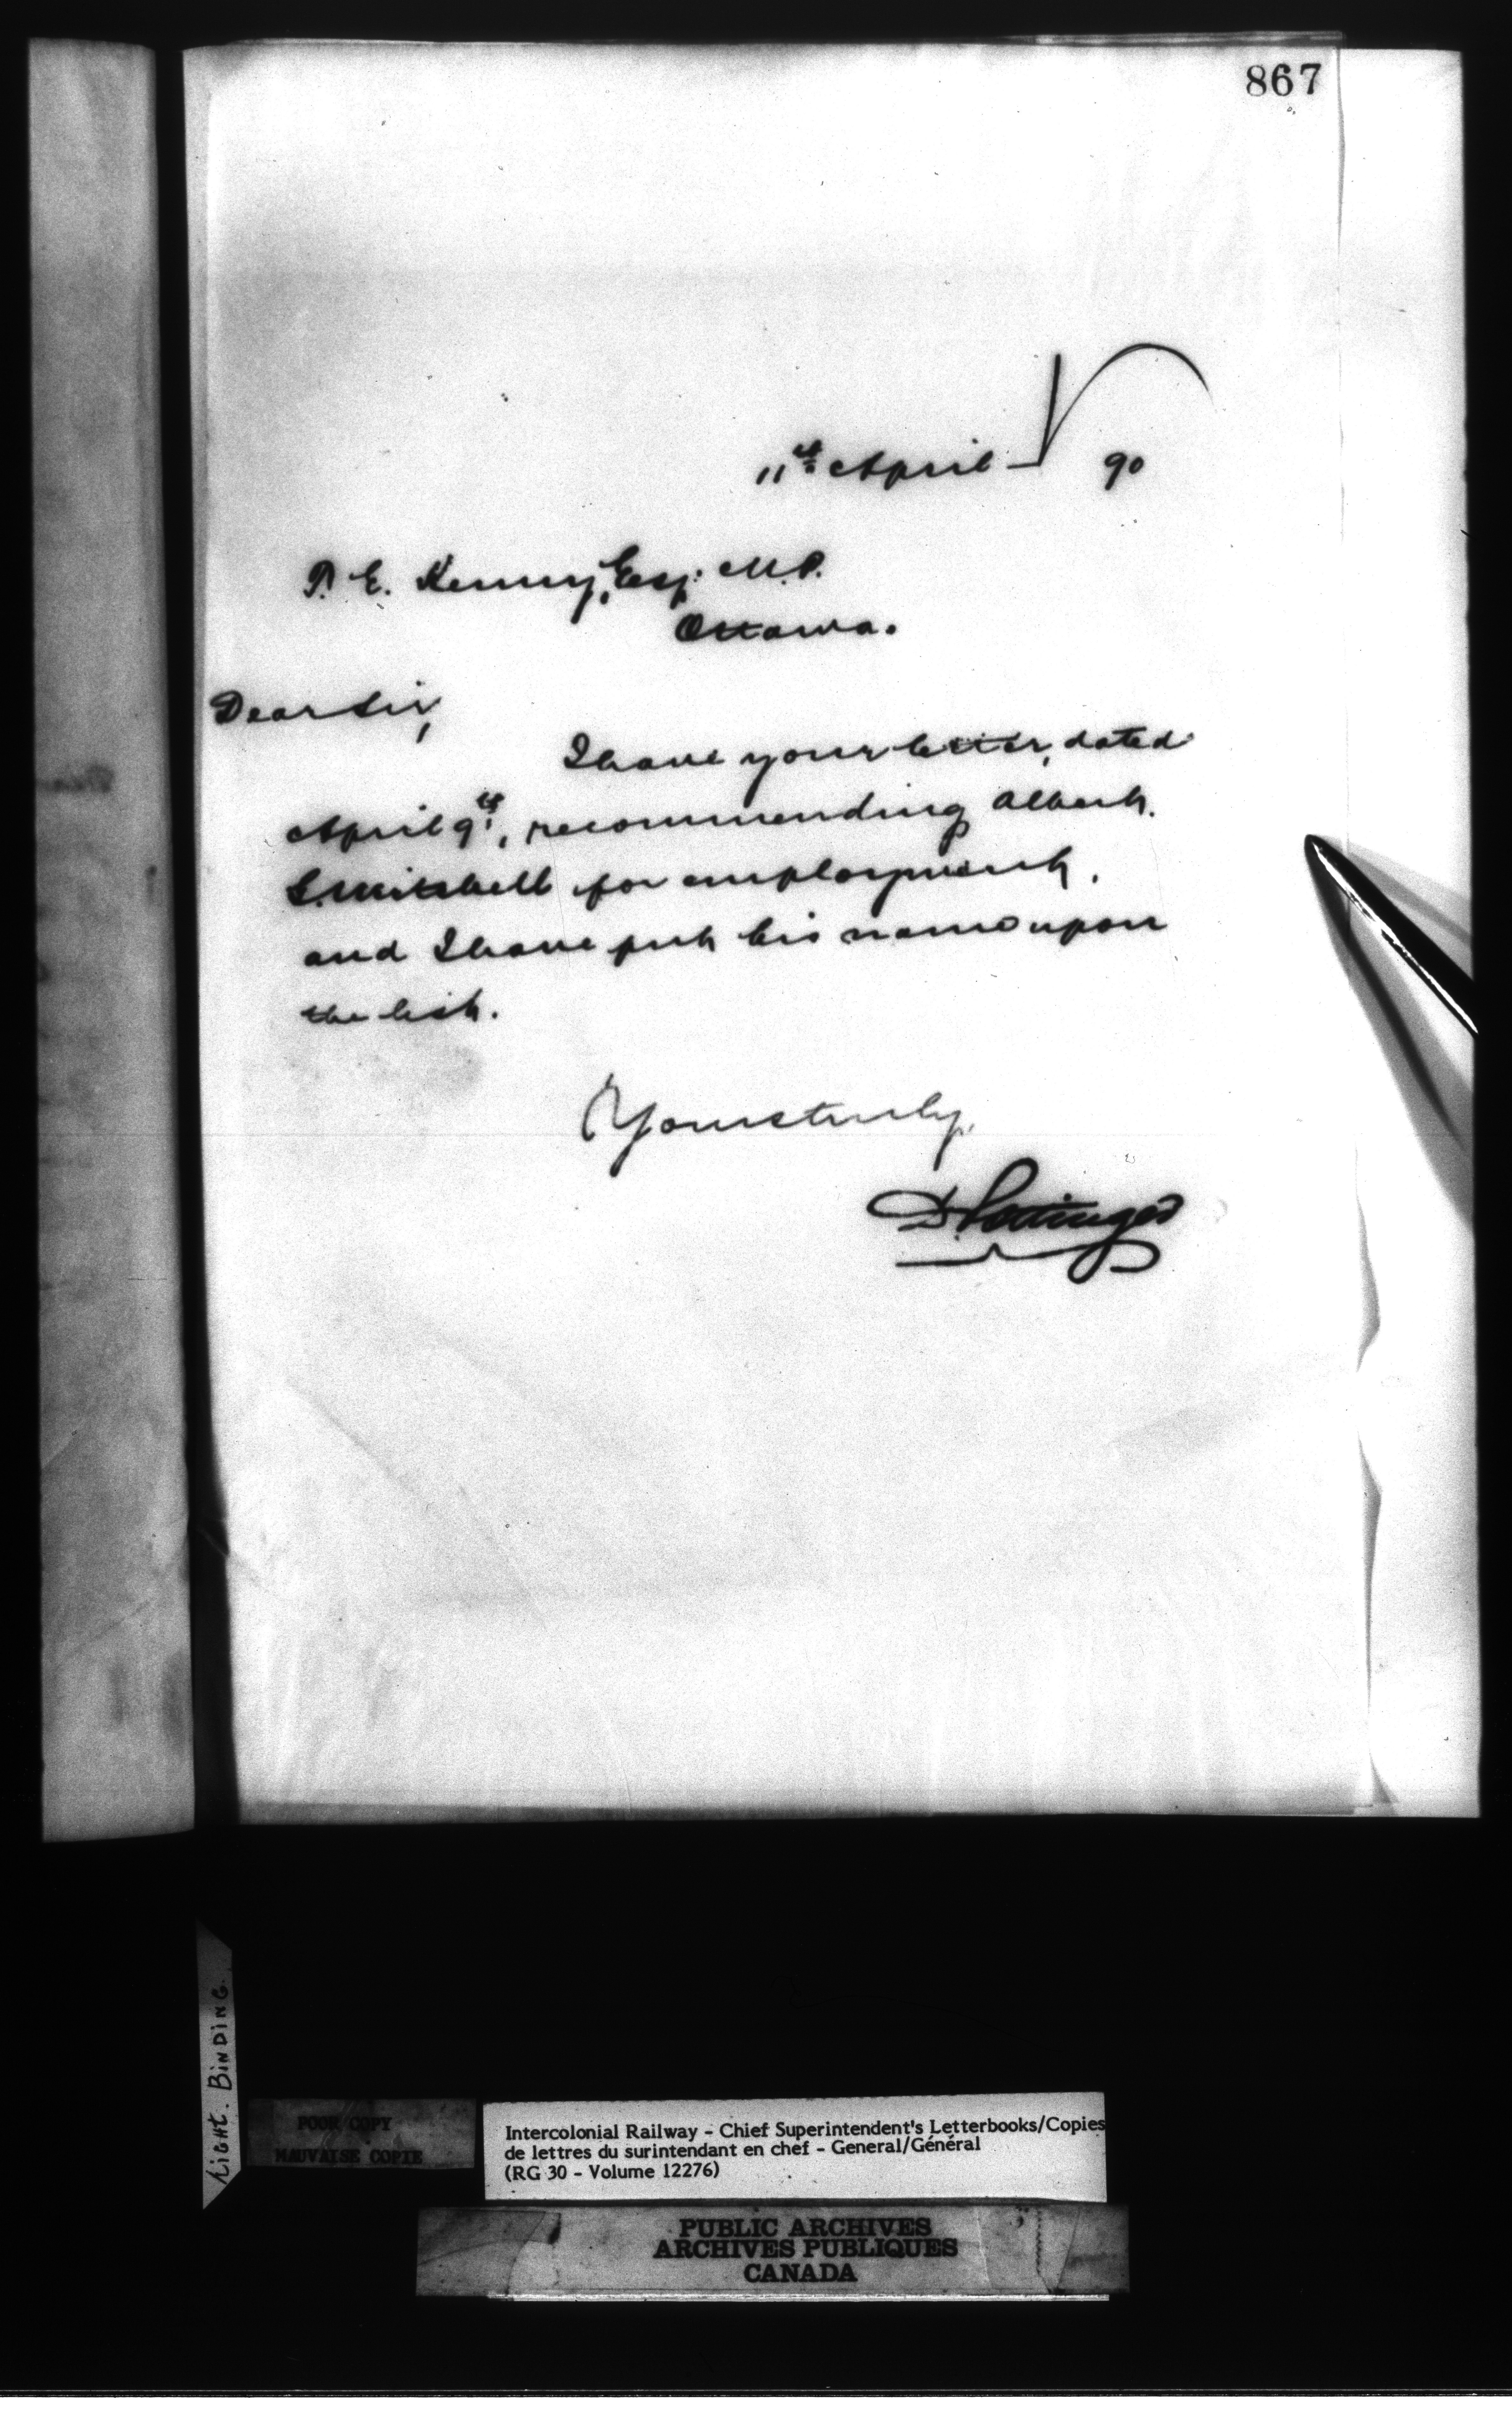 867
11th April 90
T. E. Kenny, Esq. M.P.
Ottawa.
Dear Sir,
I have your letter, dated
April 9th, recommending Albert
S. Mitchell for employment,
and I have put his name upon
the list.
Yours truly,
D. Pottinger
TIGHT. BINDING.
POOR COPY
MAUVAISE COPIE
Intercolonial Railway - Chief Superintendent's Letterbooks/Copies
de lettres du surintendant en chef - General/Général
(RG 30 - Volume 12276)
PUBLIC ARCHIVES
ARCHIVES PUBLIQUES
CANADA